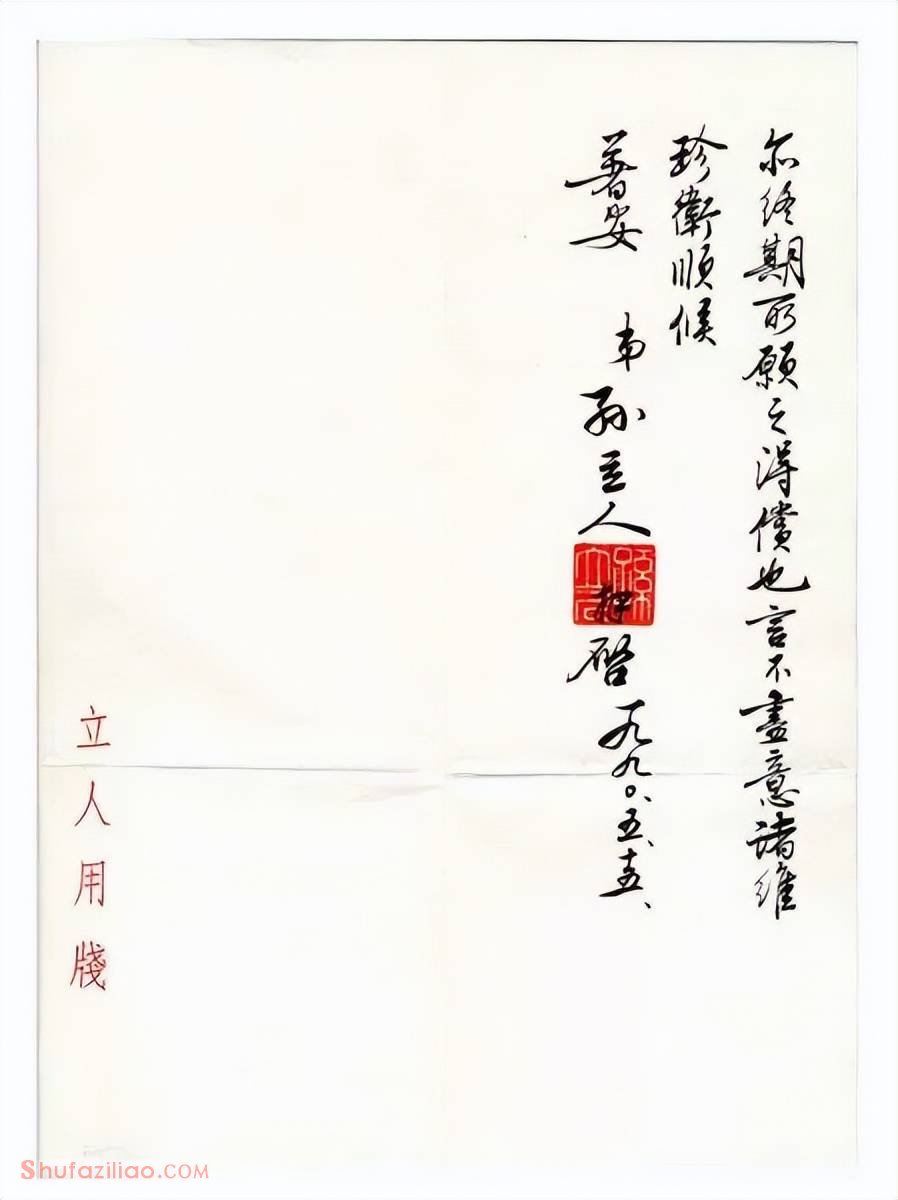 亦終期所願之得償也言不盡意諸維
珍衛順候
著安
弟孫立人
孫立人
拜啓 一九九〇、五、十五、
立人用牋
Shufaziliao.COM